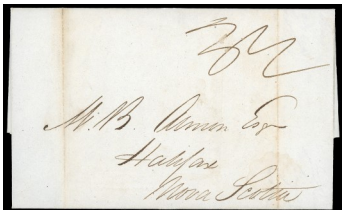 M. B. Almon Esqr
Halifax
Nova Scotia